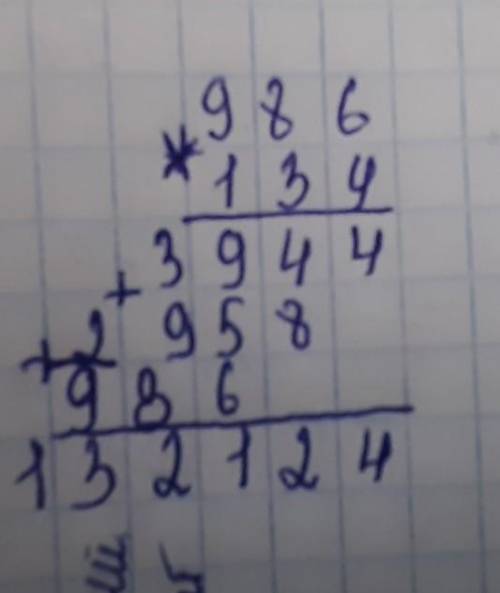 986
*
134
3944
+
2958
+
986
132124
ш